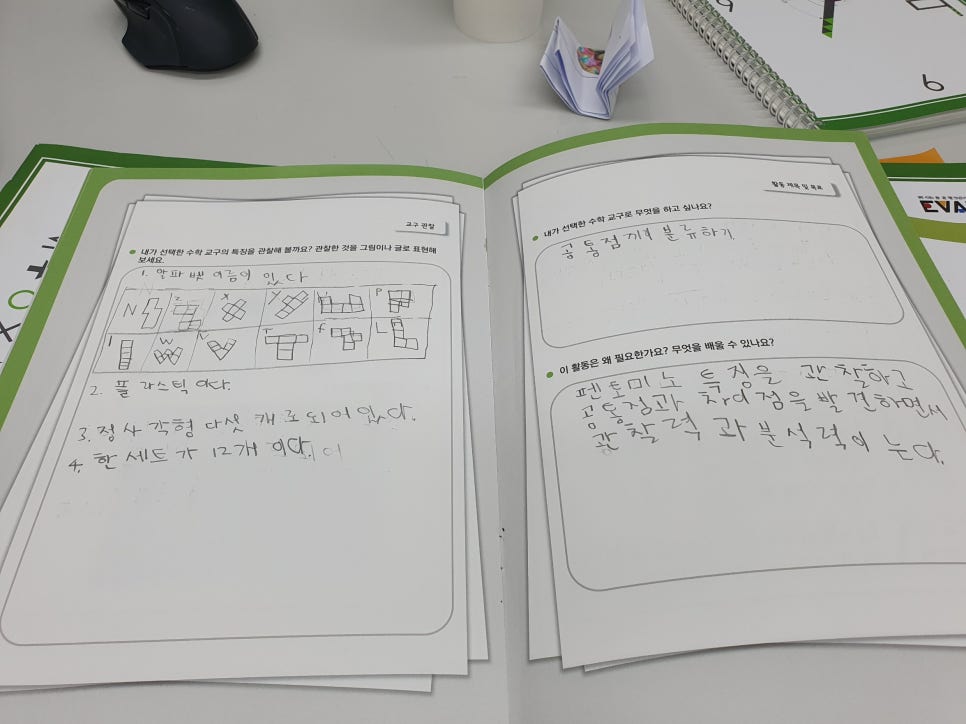 9
EVA
교구 관찰
내가 선택한 수학 교구의 특징을 관찰해 볼까요? 관찰한 것을 그림이나 글로 표현해
보세요.
1. 알파벳 이름이 있다
N Z X Y U P
I W V T f L
2. 플라스틱이다.
3. 정사각형 다섯 개로 되어있다.
4. 한 세트가 12개 이다.
활동 제목 및 목표
내가 선택한 수학 교구로 무엇을 하고 싶나요?
공통점끼리 분류하기
이 활동은 왜 필요한가요? 무엇을 배울 수 있나요?
펜토미노 특징을 관찰하고
공통점과 차이점을 발견하면서
관찰력과 분석력이 는다.